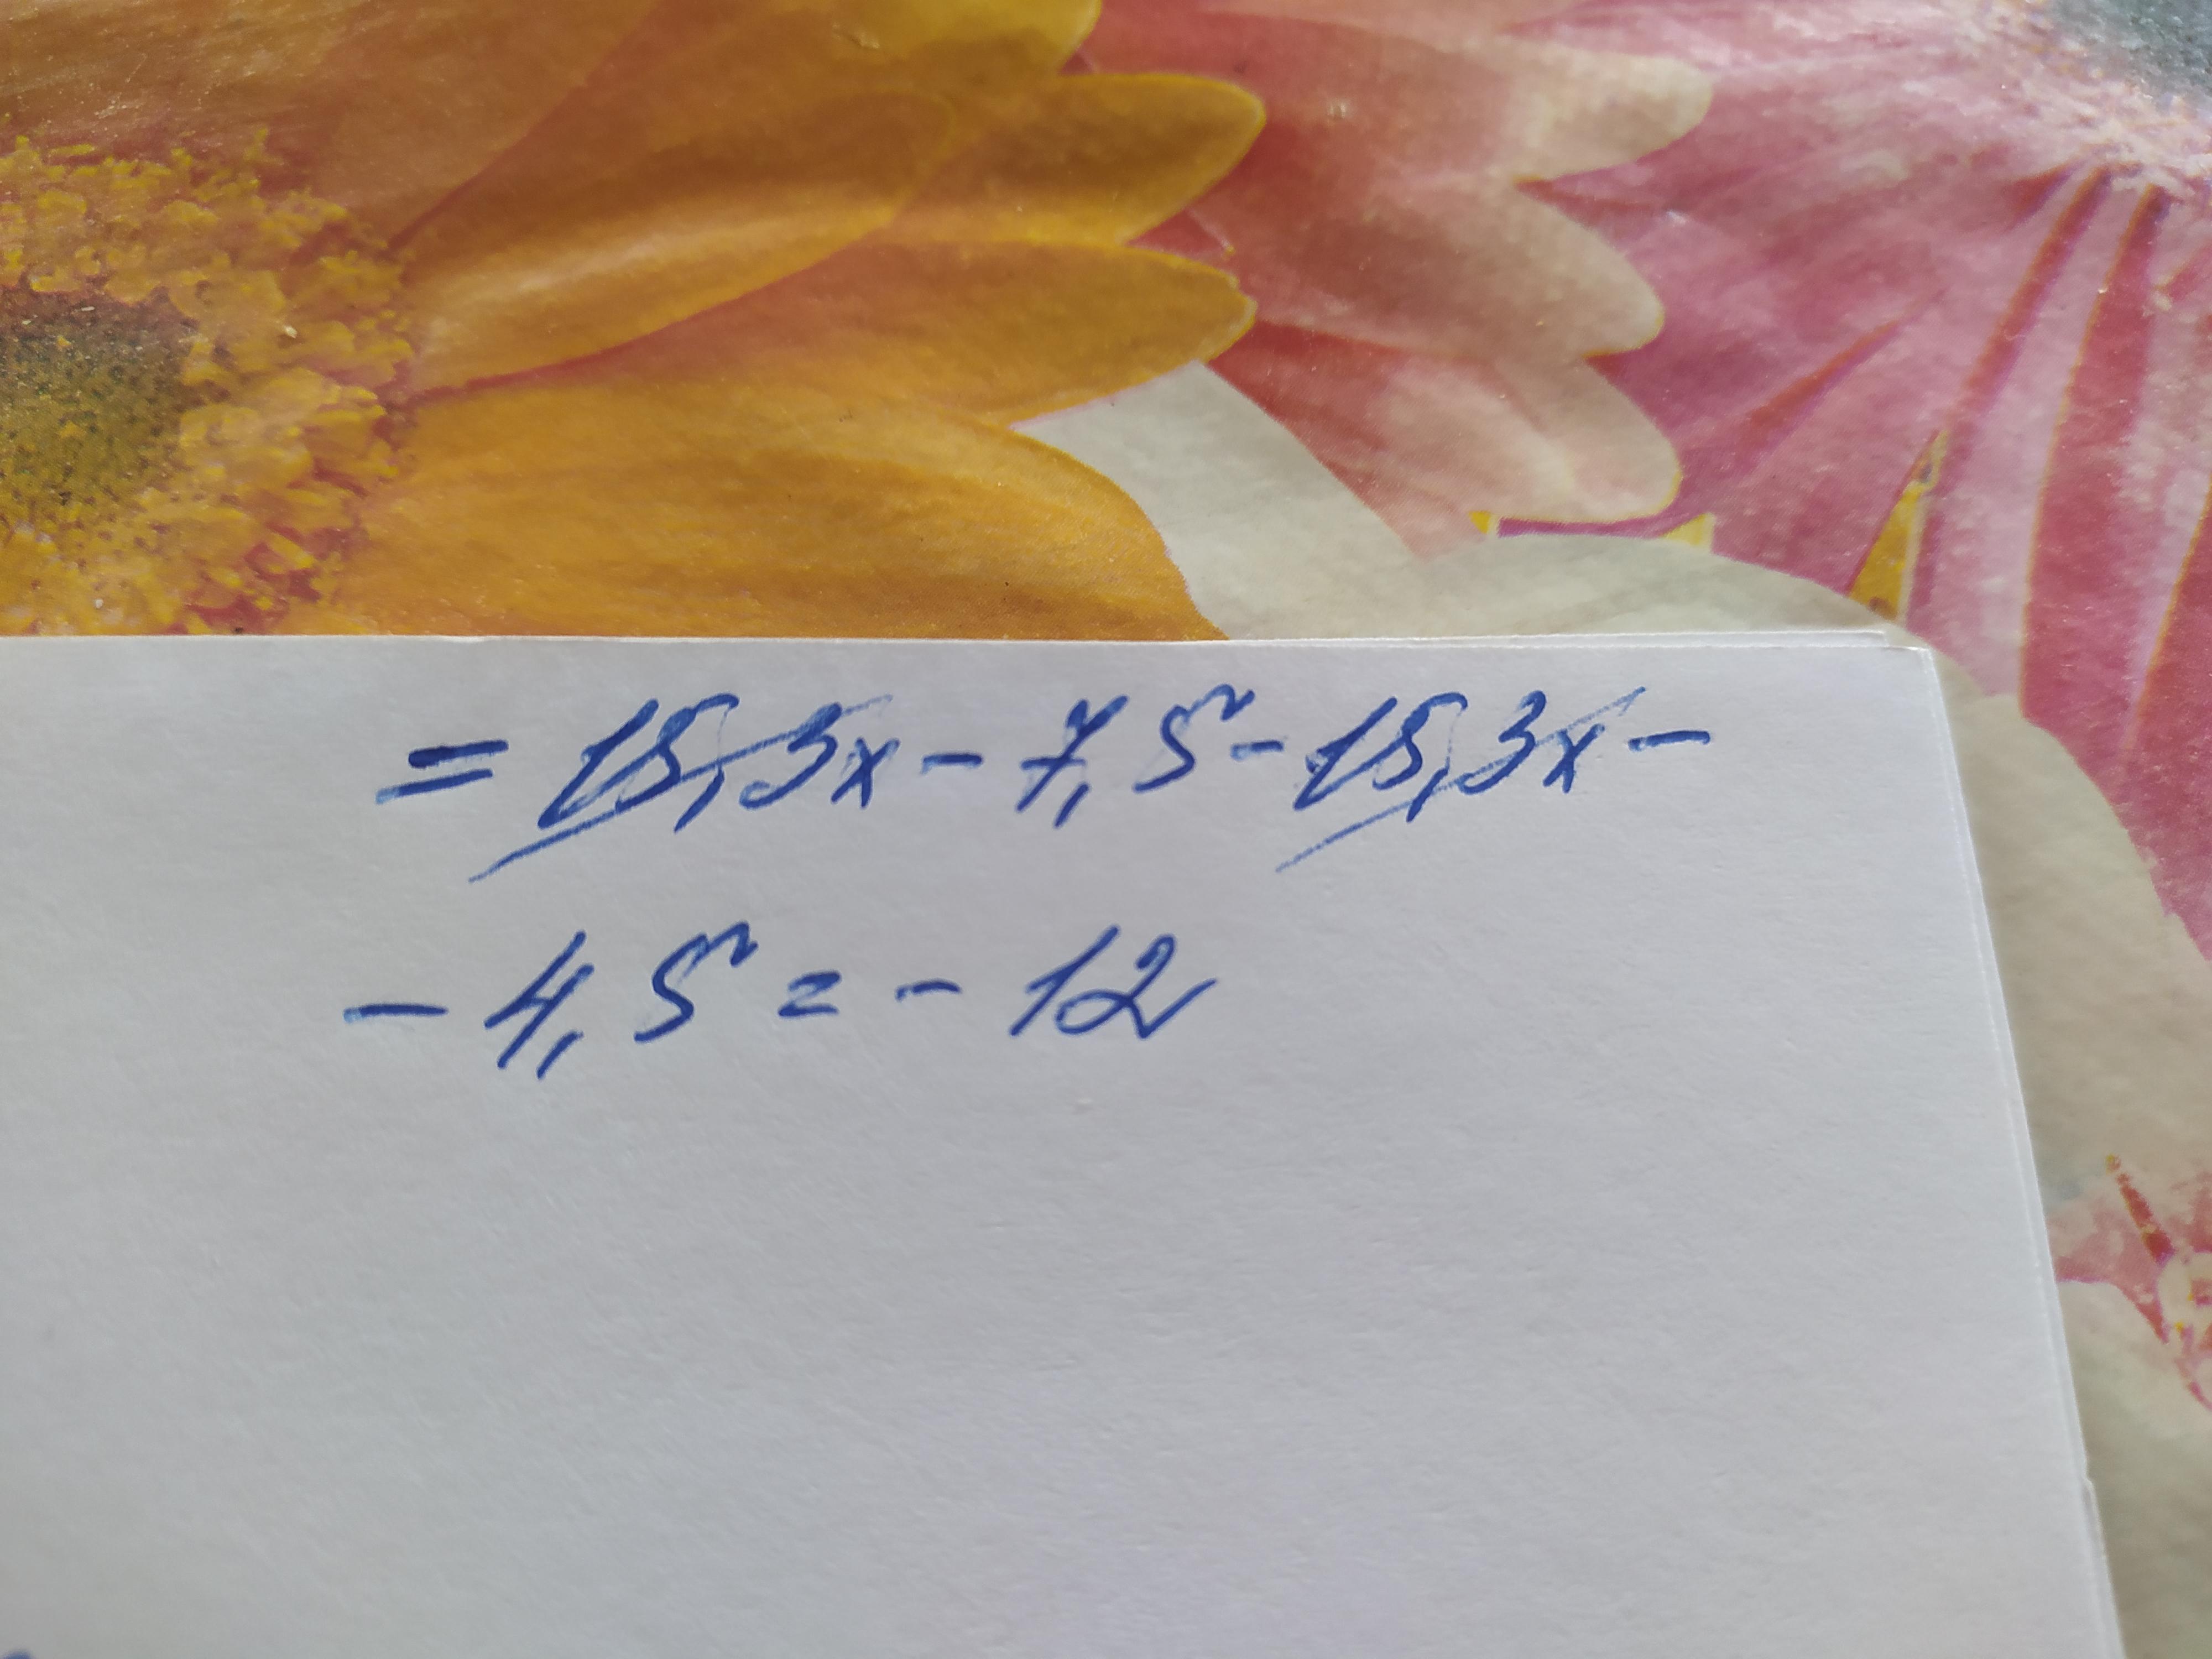 = 15,3x - 7,5 - 15,3x -
- 4,5 = - 12